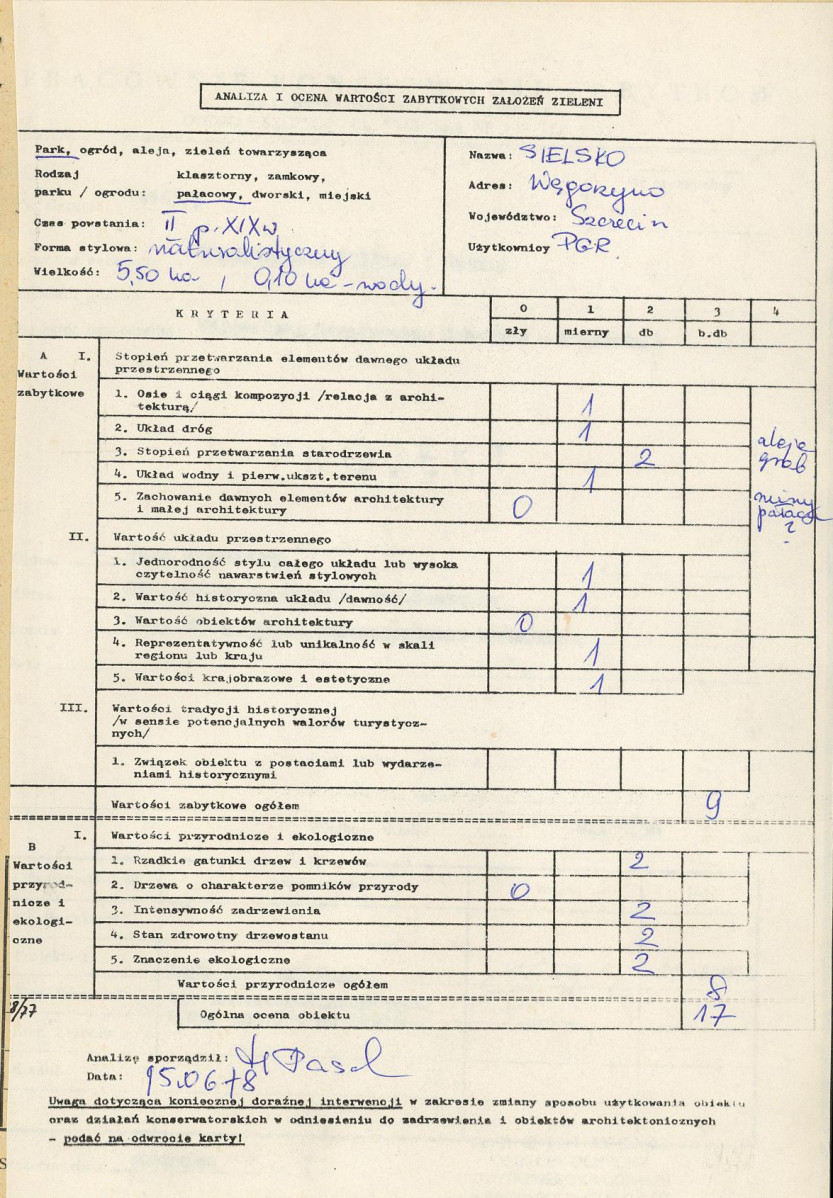 ANALIZA I OCENA WARTOŚCI ZABYTKOWYCH ZAŁOŻEŃ ZIELENI
Park, ogród, aleja, zieleń towarzysząca
Rodzaj klasztorny, zamkowy,
parku / ogrodu: pałacowy, dworski, miejski
Czas powstania: II p. XIX w.
Forma stylowa: naturalistyczny
Wielkość: 5,50 ha, 0,10 ha - wody.
Nazwa: SIELSKO
Adres: Węgorzyno
Województwo: Szczecin
Użytkownicy PGR.
KRYTERIA 0 1 2 3 4
zły mierny db b.db
A I. Stopień przetwarzania elementów dawnego układu
Wartości przestrzennego
zabytkowe 1. Osie i ciągi kompozycji /relacja z archi-
tekturą/ 1
2. Układ dróg 1
3. Stopień przetwarzania starodrzewia 2
aleje
grab
4. Układ wodny i pierw.ukszt.terenu 1
5. Zachowanie dawnych elementów architektury
i małej architektury 0
ruiny
pałacu
?
II. Wartość układu przestrzennego
1. Jednorodność stylu całego układu lub wysoka
czytelność nawarstwień stylowych 1
2. Wartość historyczna układu /dawność/ 1
3. Wartość obiektów architektury 0
4. Reprezentatywność lub unikalność w skali
regionu lub kraju 1
5. Wartości krajobrazowe i estetyczne 1
III. Wartości tradycji historycznej
/w sensie potencjalnych walorów turystycz-
nych/
1. Związek obiektu z postaciami lub wydarze-
niami historycznymi
Wartości zabytkowe ogółem 9
B I. Wartości przyrodnicze i ekologiczne
Wartości 1. Rzadkie gatunki drzew i krzewów 2
przyrod- 2. Drzewa o charakterze pomników przyrody 0
nicze i 3. Intensywność zadrzewienia 2
ekologi- 4. Stan zdrowotny drzewostanu 2
czne 5. Znaczenie ekologiczne 2
Wartości przyrodnicze ogółem 8
8/77 Ogólna ocena obiektu 17
Analizę sporządził:
Data: 15.06 78
Uwaga dotycząca koniecznej doraźnej interwencji w zakresie zmiany sposobu użytkowania obiektu
oraz działań konserwatorskich w odniesieniu do zadrzewienia i obiektów architektonicznych
- podać na odwrocie karty!
S